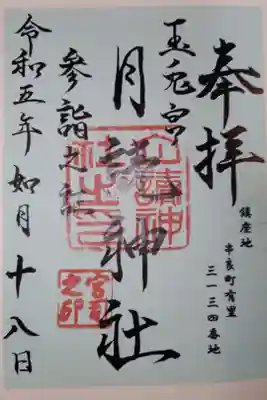 奉拝
鎮座地
串良町有里
三一三四番地
玉兎宮
月読神社
参詣之
令和五年 如月 十八日
宮司
之印